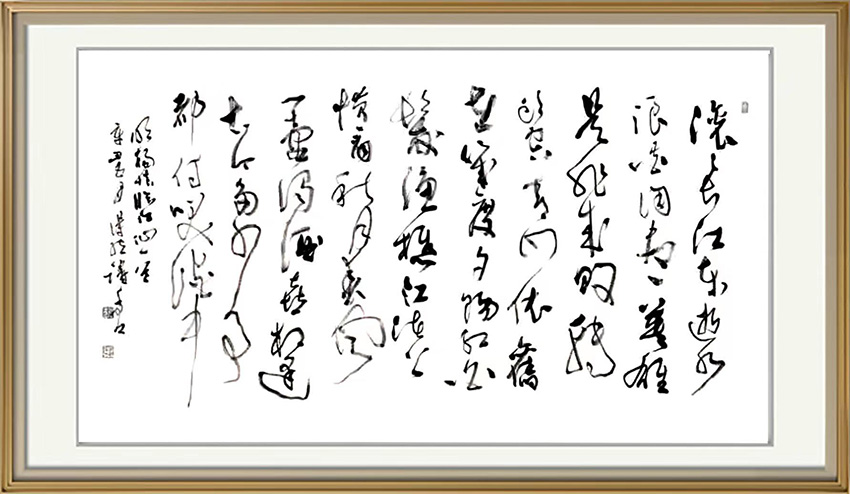 滚々长江东逝水
浪花淘尽英雄
是非成败转
头空青山依舊
在几度夕阳红白
髮渔樵江渚上
惯看秋月春风
一壶浊酒喜相逢
古今多少事
都付笑谈中
明杨慎临江仙一首